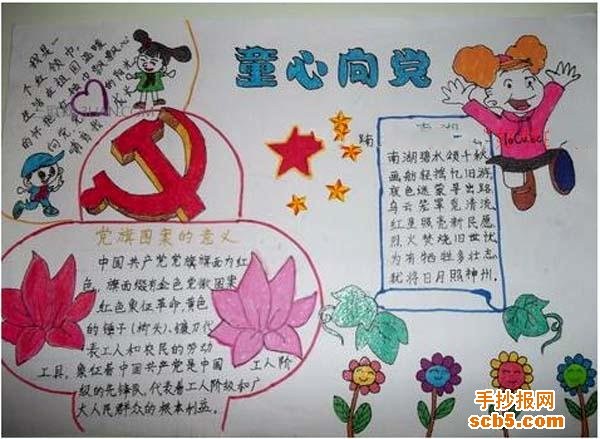 童心向党
我是一
个红领巾,
生活在祖国温暖
的怀抱
党旗图案的意义
中国共产党党旗旗面为红
色,旗面缀有金色党徽图案
红色象征革命,黄色
的锤子(榔头)、镰刀代
表工人和农民的劳动
工具,象征着中国共产党是中国工人阶
级的先锋队,代表着工人阶级和广
大人民群众的根本利益。
南湖碧水颂千秋
画舫轻摇忆旧游
夜色迷蒙寻出路
乌云笼罩觅清流
红星照亮新民愿
烈火焚烧旧世忧
为有牺牲多壮志
犹将日月照神州。
手抄报网
scb5.com